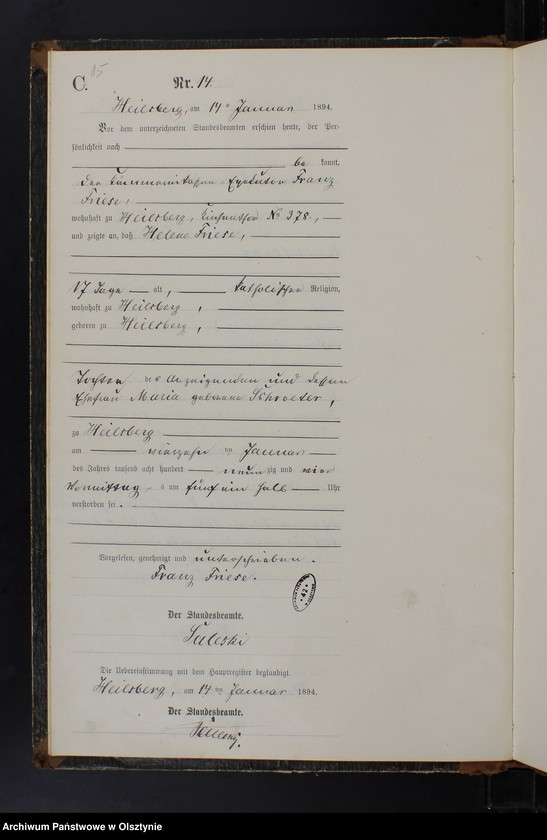 C. 15 Nr. 14.
Heilsberg, am 14ten Januar 1894.
Vor dem unterzeichneten Standesbeamten erschien heute, der Per-
sönlichkeit nach
be kannt,
der Exekutor Franz
Friese,
wohnhaft zu Heilsberg, No 378.,
und zeigte an, daß Helene Friese,
17 Tage alt, katholischer Religion,
wohnhaft zu Heilsberg,
geboren zu Heilsberg,
Tochter des Anzeigenden und dessen
Ehefrau Maria geborene Schroeter,
zu Heilsberg
am vierzehnten Januar
des Jahres tausend acht hundert neunzig und vier
Vormittags um fünf ein halb Uhr
verstorben sei.
Vorgelesen, genehmigt und unterschrieben.
Franz Friese.
42
Der Standesbeamte.
Die Uebereinstimmung mit dem Hauptregister beglaubigt.
Heilsberg, am 14ten Januar 1894.
Der Standesbeamte.
Archiwum Państwowe w Olsztynie